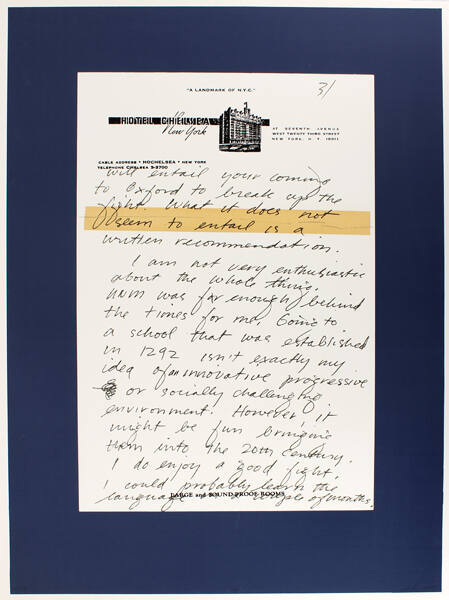 "A LANDMARK OF N.Y.C."
3/
HOTEL CHELSEA
New York
AT SEVENTH AVENUE
WEST TWENTY THIRD STREET
NEW YORK, N.Y. 10011
CABLE ADDRESS • HOCHELSEA • NEW YORK
TELEPHONE CHELSEA 3-3700
will entail your coming
to Oxford to break up the
fight. What it does not
seem to entail is a
written recommendation.
I am not very enthusiastic
about the whole thing.
UNM was far enough behind
the times for me. Going to
a school that was established
in 1292 isn't exactly my
idea of an innovative progressive
or socially challenging
environment. However, it
might be fun bringing
them into the 20th century.
I do enjoy a good fight.
I could probably learn the
language in a couple of months.
LARGE and SOUND PROOF ROOMS